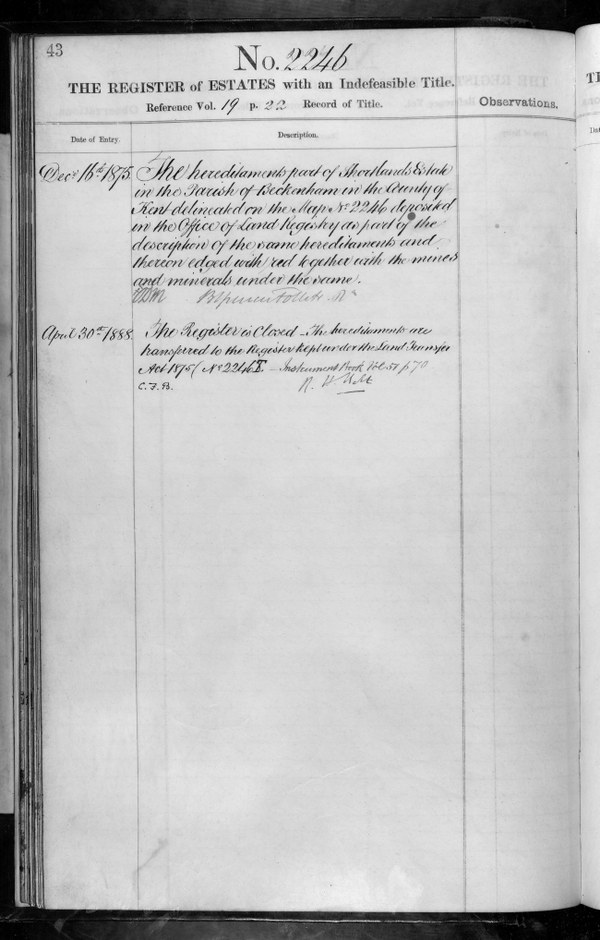 43
No. 2246
THE REGISTER of ESTATES with an Indefeasible Title.
Reference Vol. 19 p. 22 Record of Title.
Observations.
Date of Entry.
Description.
Decr 16th 1875
The hereditaments part of Shortlands Estate
in the Parish of Beckenham in the County of
Kent delineated on the Map No 2246 deposited
in the Office of Land Registry as part of the
description of the same hereditaments and
thereon edged with red together with the mines
and minerals under the same.
Follett
April 30th 1888
The Register is Closed - The hereditaments are
transferred to the Register kept under the Land Transfer
Act 1875 (No 2246 - Instrument Book Vol p 70
C.F.B. R. H. Holt